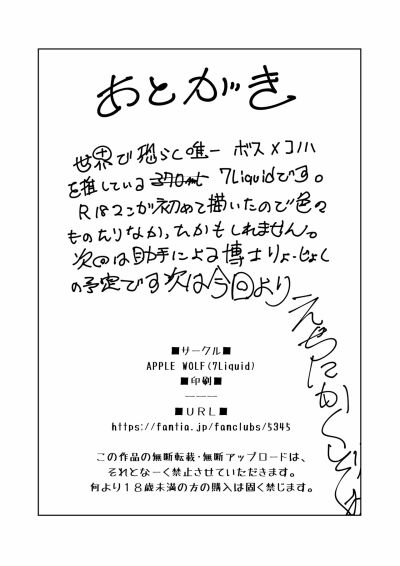 あとがき
世界で恐らく唯一 ボス×コノハ
を推している 370ml 7Liquidです。
R18マンガ初めて描いたので色々
ものたりなかったかもしれません。
次回は助手による博士りょーじょく
の予定です次は今回より
えっちにかくぞ
■サークル■
APPLE WOLF(7Liquid)
■印刷■
ーーー
■URL■
https://fantia.jp/fanclubs/5345
この作品の無断転載・無断アップロードは、
それとなーく禁止させていただきます。
何より18歳未満の方の購入は固く禁じます。